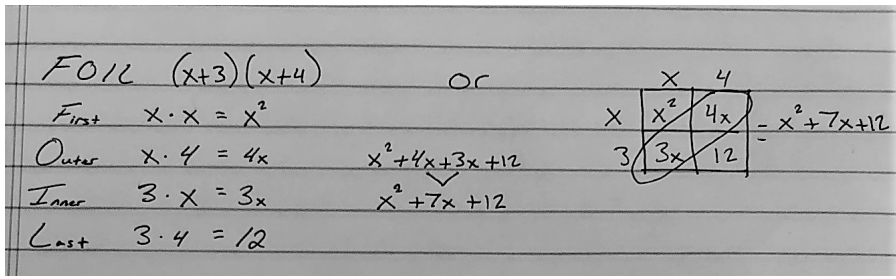 FOIL (x+3)(x+4) or
First x · x = x²
Outer x · 4 = 4x
Inner 3 · x = 3x
Last 3 · 4 = 12
x²+4x+3x+12
x²+7x+12
x 4
x x² 4x = x²+7x+12
3 3x 12